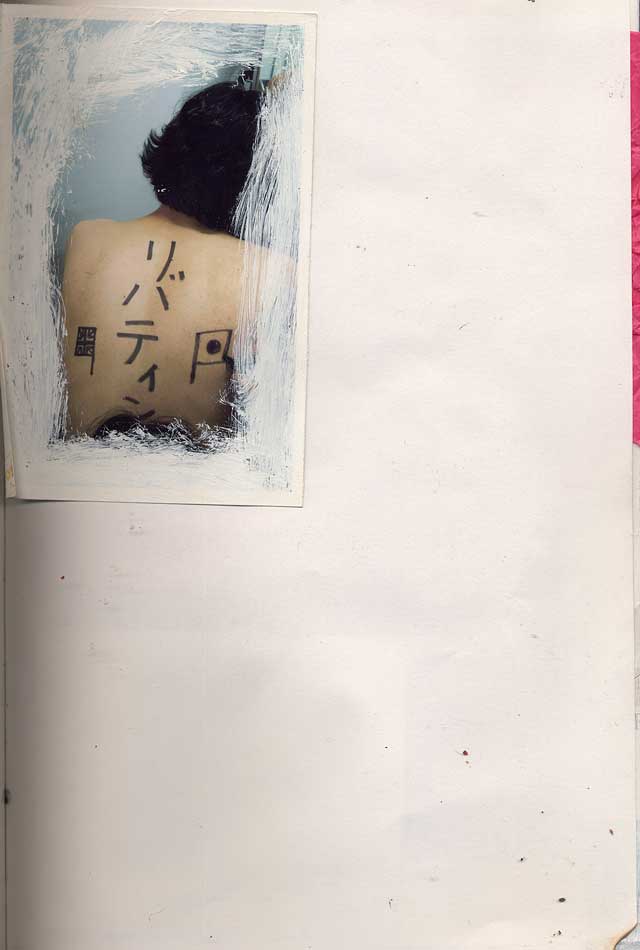 リバティン